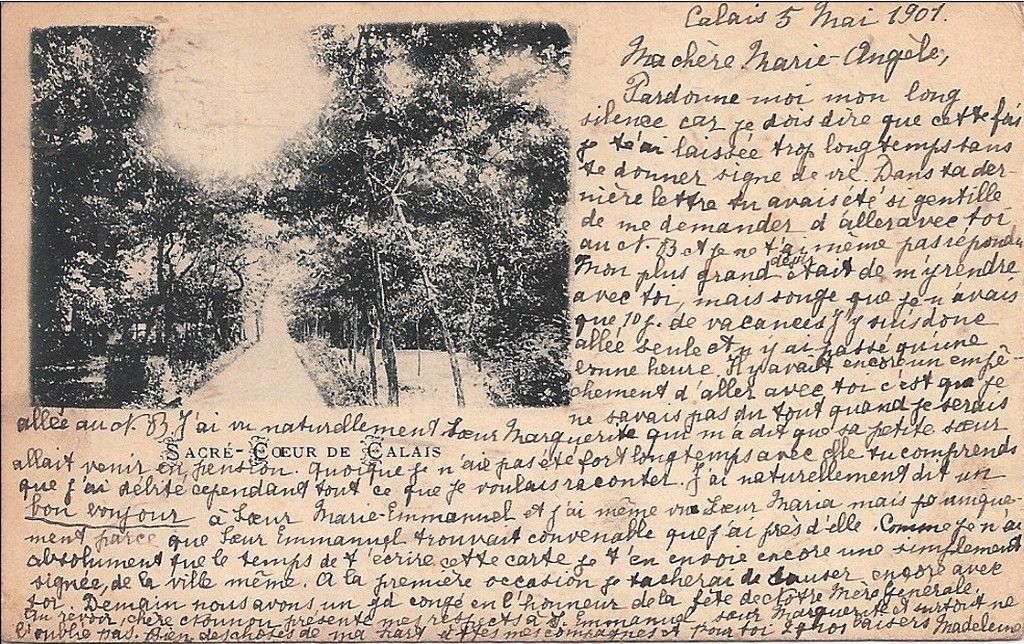 Calais 5 Mai 1901.
Ma chère Marie-Angèle,
Pardonne moi mon long
silence car je dois dire que cette fois
je t'ai laissée trop longtemps sans
te donner signe de vie. Dans ta der-
nière lettre tu avais été si gentille
de me demander d'aller avec toi
au N. B et je ne t'ai même pas répondu
Mon plus grand désir était de m'y rendre
avec toi, mais songe que je n'avais
que 10 j. de vacances J'y suis donc
allée seule et n'y ai passé qu'une
bonne heure. Il y avait encore un empê-
chement d'aller avec toi c'est que je
ne savais pas du tout quand je serais
allée au N. B. J'ai vu naturellement Sœur Marguerite qui m'a dit que sa petite sœur
SACRÉ-CŒUR DE CALAIS
allait venir en pension. Quoique je n'aie pas été fort longtemps avec elle tu comprends
que j'ai débité cependant tout ce que je voulais raconter. J'ai naturellement dit un
bon bonjour à Sœur Marie-Emmanuel et j'ai même vu Sœur Maria mais unique-
ment parce que Sœur Emmanuel trouvait convenable que j'ai près d'elle. Comme je n'ai
absolument que le temps de t'écrire cette carte je t'en envoie encore une simplement
signée, de la ville même. A la première occasion je tacherai de causer encore avec
toi. Demain nous avons un gd congé en l'honneur de la fête de Notre Mère Générale.
Au revoir, chère présente mes respects à S. Emmanuel, sœur Marguerite et surtout ne
l'oublie pas. Bien des choses de ma part à tes mes compagnes et pour toi baisers Madeleine